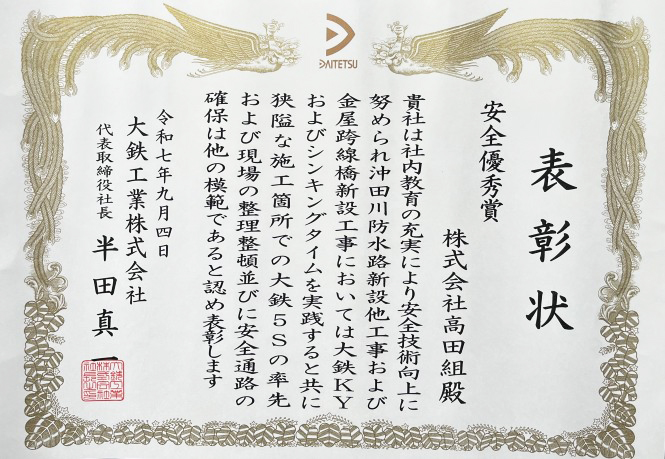 DAITETSU
表彰状
安全優秀賞
株式会社高田組殿
貴社は社内教育の充実により安全技術向上に
努められ沖田川防水路新設他工事および
金屋跨線橋新設工事においては大鉄KY
およびシンキングタイムを実践すると共に
狭隘な施工箇所での大鉄5Sの率先
および現場の整理整頓並びに安全通路の
確保は他の模範であると認め表彰します
令和七年九月四日
大鉄工業株式会社
代表取締役社長 半田真一